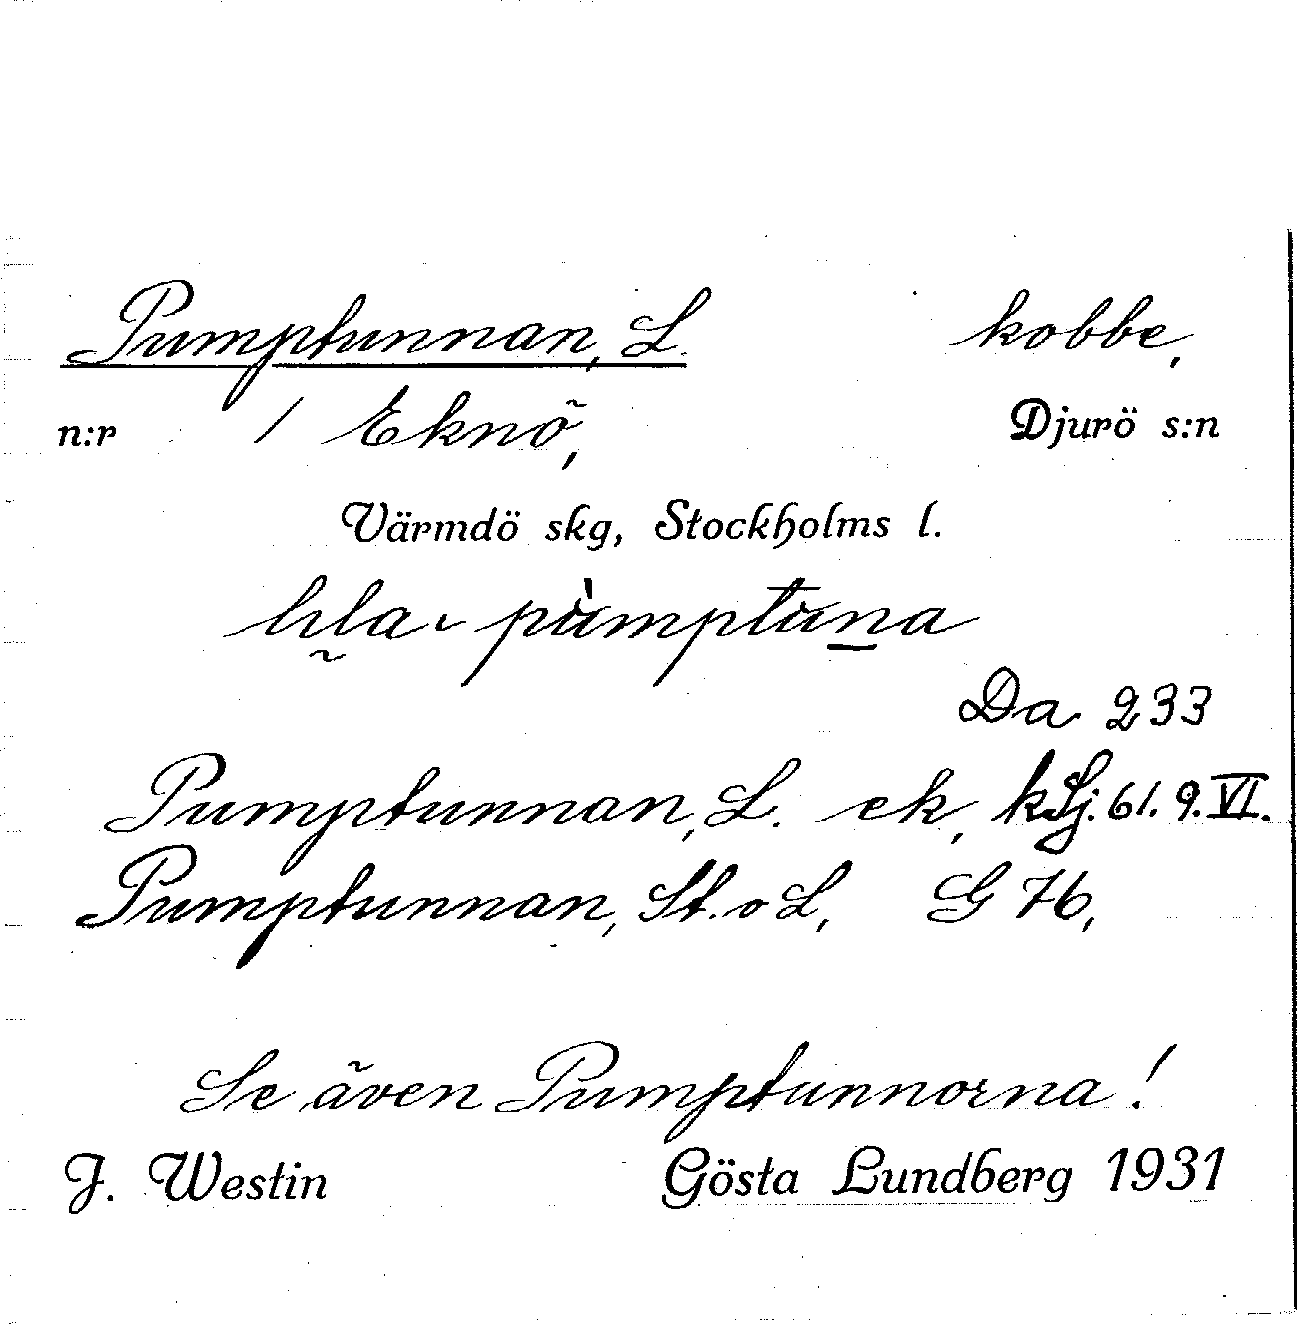 Pumptunnan, L. kobbe,
n:r 1 Eknö, Djurö s:n
Värmdö skg, Stockholms l.
pùmptuna
Da 233
Pumptunnan, L. ek, kSj. 61. 9. VI.
Pumptunnan, St. o L, G 76,
Se även Pumptunnorna!
J. Westin Gösta Lundberg 1931